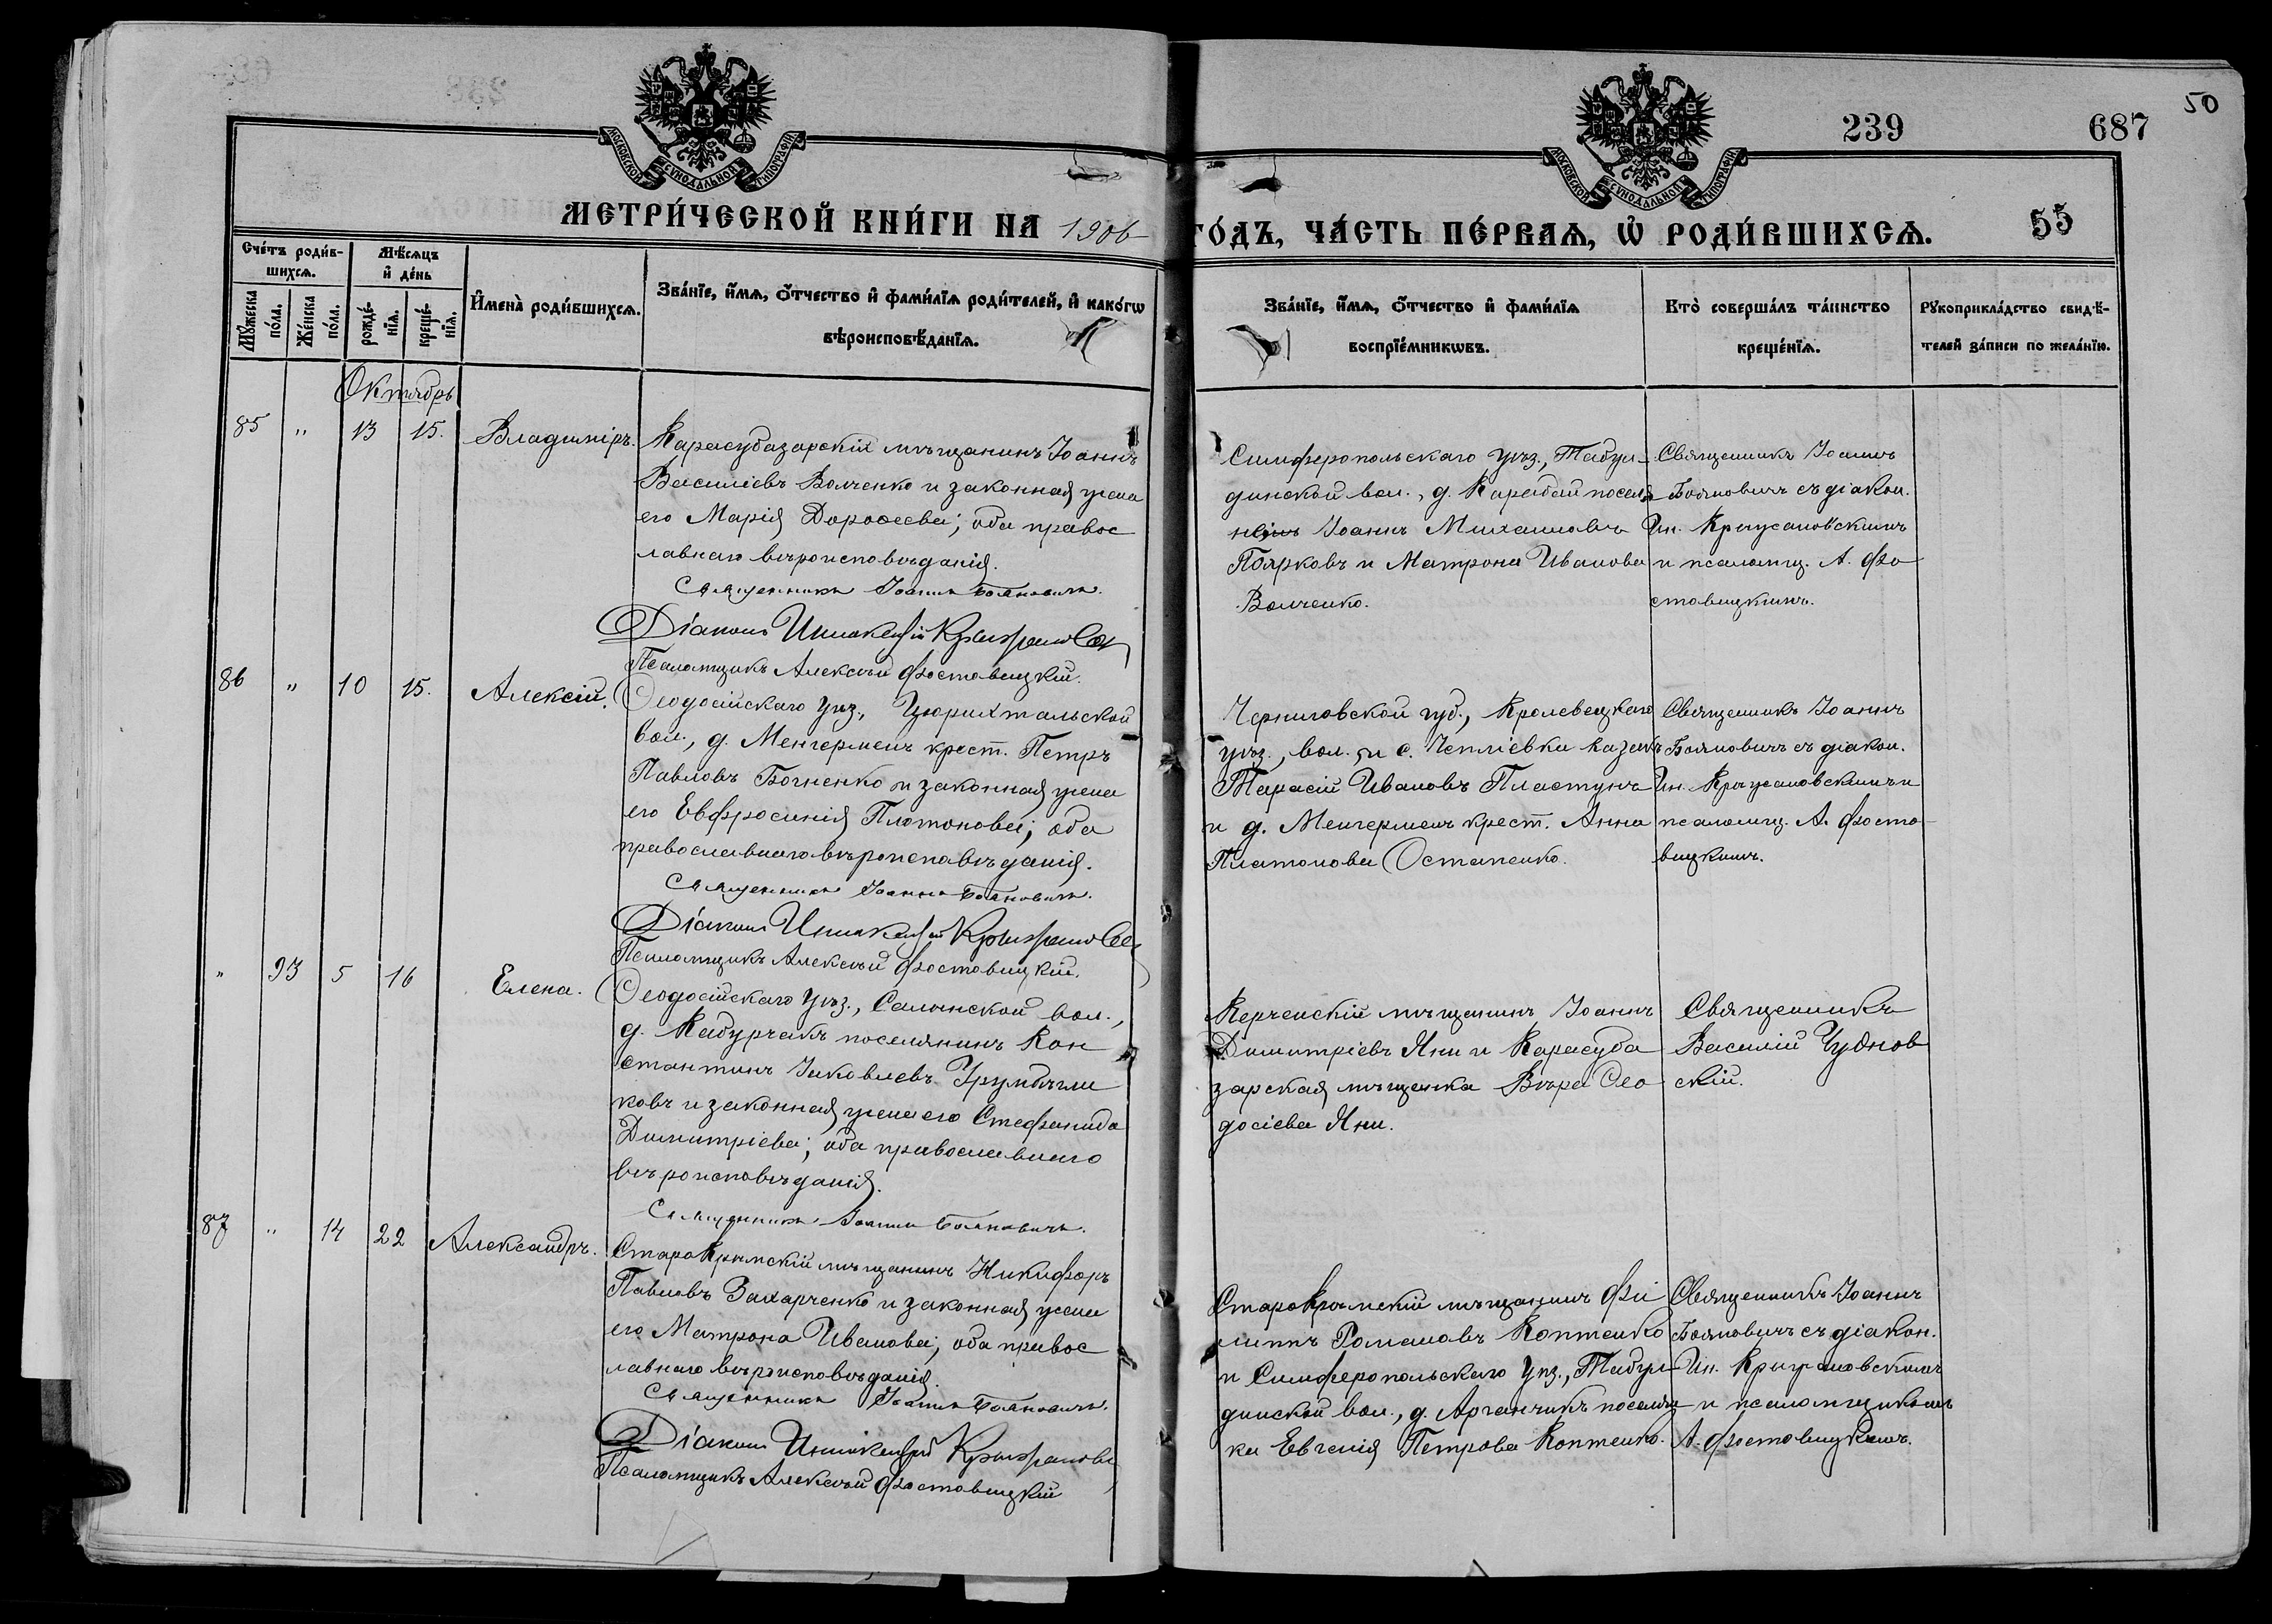 50
239
687
МОСКОВСКОЙ СѴНОДАЛЬНОЙ ТИПОГРАФІИ
МОСКОВСКОЙ СѴНОДАЛЬНОЙ ТИПОГРАФІИ
МЕТРИ́ЧЕСКОЙ КНИ́ГИ НА 1906
ГО́ДЪ, ЧА́СТЬ ПЕ́РВАѦ, Ѡ҆ РОДИ́ВШИХСѦ.
55
Сче́тъ роди́в-
шихсѧ.
Мѣ́сѧцъ
и҆ де́нь
Мꙋ́жеска
по́ла.
Же́нска
по́ла.
рожде́-
нїѧ.
креще́-
нїѧ.
И҆мена̀ роди́вшихсѧ.
Зва́нїе, и҆́мѧ, ѻ҆́тчество и҆ фами́лїѧ роди́телей, и҆ како́гѡ
вѣроисповѣ́данїѧ.
Зва́нїе, и҆́мѧ, ѻ҆́тчество и҆ фами́лїѧ
воспрїе́мникѡвъ.
Кто̀ соверша́лъ та́инство
креще́нїѧ.
Рꙋкоприкла́дство свидѣ́-
телей за́писи по жела́нїю.
Октябрь
85 " 13 15. Владиміръ.
Карасубазарскій мѣщанинъ Іоаннъ
Василіевъ Волченко и законная жена
его Марія Дорофеева; оба правос
лавнаго вѣроисповѣданія.
Священникъ Іоаннъ Бояновичъ.
Діаконъ Иннокентій
Псаломщикъ Алексѣй Фостовицкій.
Симферопольскаго уѣз., Табул-
динской вол., д. Карабай поселя
нинъ Іоаннъ Михаиловъ
Поярковъ и Матрона Иванова
Волченко.
Священникъ Іоаннъ
Бояновичъ съ діакон.
Ин. Крыжановскимъ
и псаломщ. А. Фо
стовицкимъ.
86 " 10 15. Алексій.
Ѳеодосійскаго уѣз., Цюрихтальской
вол., д. Менгерменъ крест. Петръ
Павловъ Богненко и законная жена
его Евфросинія Платонова; оба
православнаго вѣроисповѣданія.
Священникъ Іоаннъ Бояновичъ.
Діаконъ Иннокентій
Псаломщикъ Алексѣй Фостовицкій.
Черниговской губ., Кролевецкаго
уѣз., вол. и с. Чепліевки казакъ
Тарасій Ивановъ Пластунъ
и д. Менгерменъ крест. Анна
Платонова Остапенко.
Священникъ Іоаннъ
Бояновичъ съ діакон.
Ин. Крыжановскимъ и
псаломщ. А. Фосто-
вицкимъ.
" 93 5 16 Елена.
Ѳеодосійскаго уѣз., Салынской вол.,
д. Кабурчакъ поселянинъ Кон
стантинъ Іаковлевъ
ковъ и законная жена его Стефанида
Димитріева; оба православнаго
вѣроисповѣданія.
Священникъ Іоаннъ Бояновичъ.
Керченскій мѣщанинъ Іоаннъ
Димитріевъ Яни и Карасуба
зарская мѣщанка Вѣра Ѳео
досіева Яни.
Священникъ
Василій Чуднов
скій.
87 " 14 22 Александръ.
СтароКрымскій мѣщанинъ Никифоръ
Павловъ Захарченко и законная жена
его Матрона Иванова; оба правос
лавнаго вѣроисповѣданія.
Священникъ Іоаннъ Бояновичъ.
Діаконъ Иннокентій
Псаломщикъ Алексѣй Фостовицкій
СтароКрымскій мѣщанинъ Фи
липпъ Романовъ Коптенко
и Симферопольскаго уѣз., Табул-
динской вол., д. Аргинчикъ поселян
ка Евгенія Петрова Коптенко.
Священникъ Іоаннъ
Бояновичъ съ діакон.
Ин. Крыжановскимъ
и псаломщикомъ
А. Фостовицкимъ.